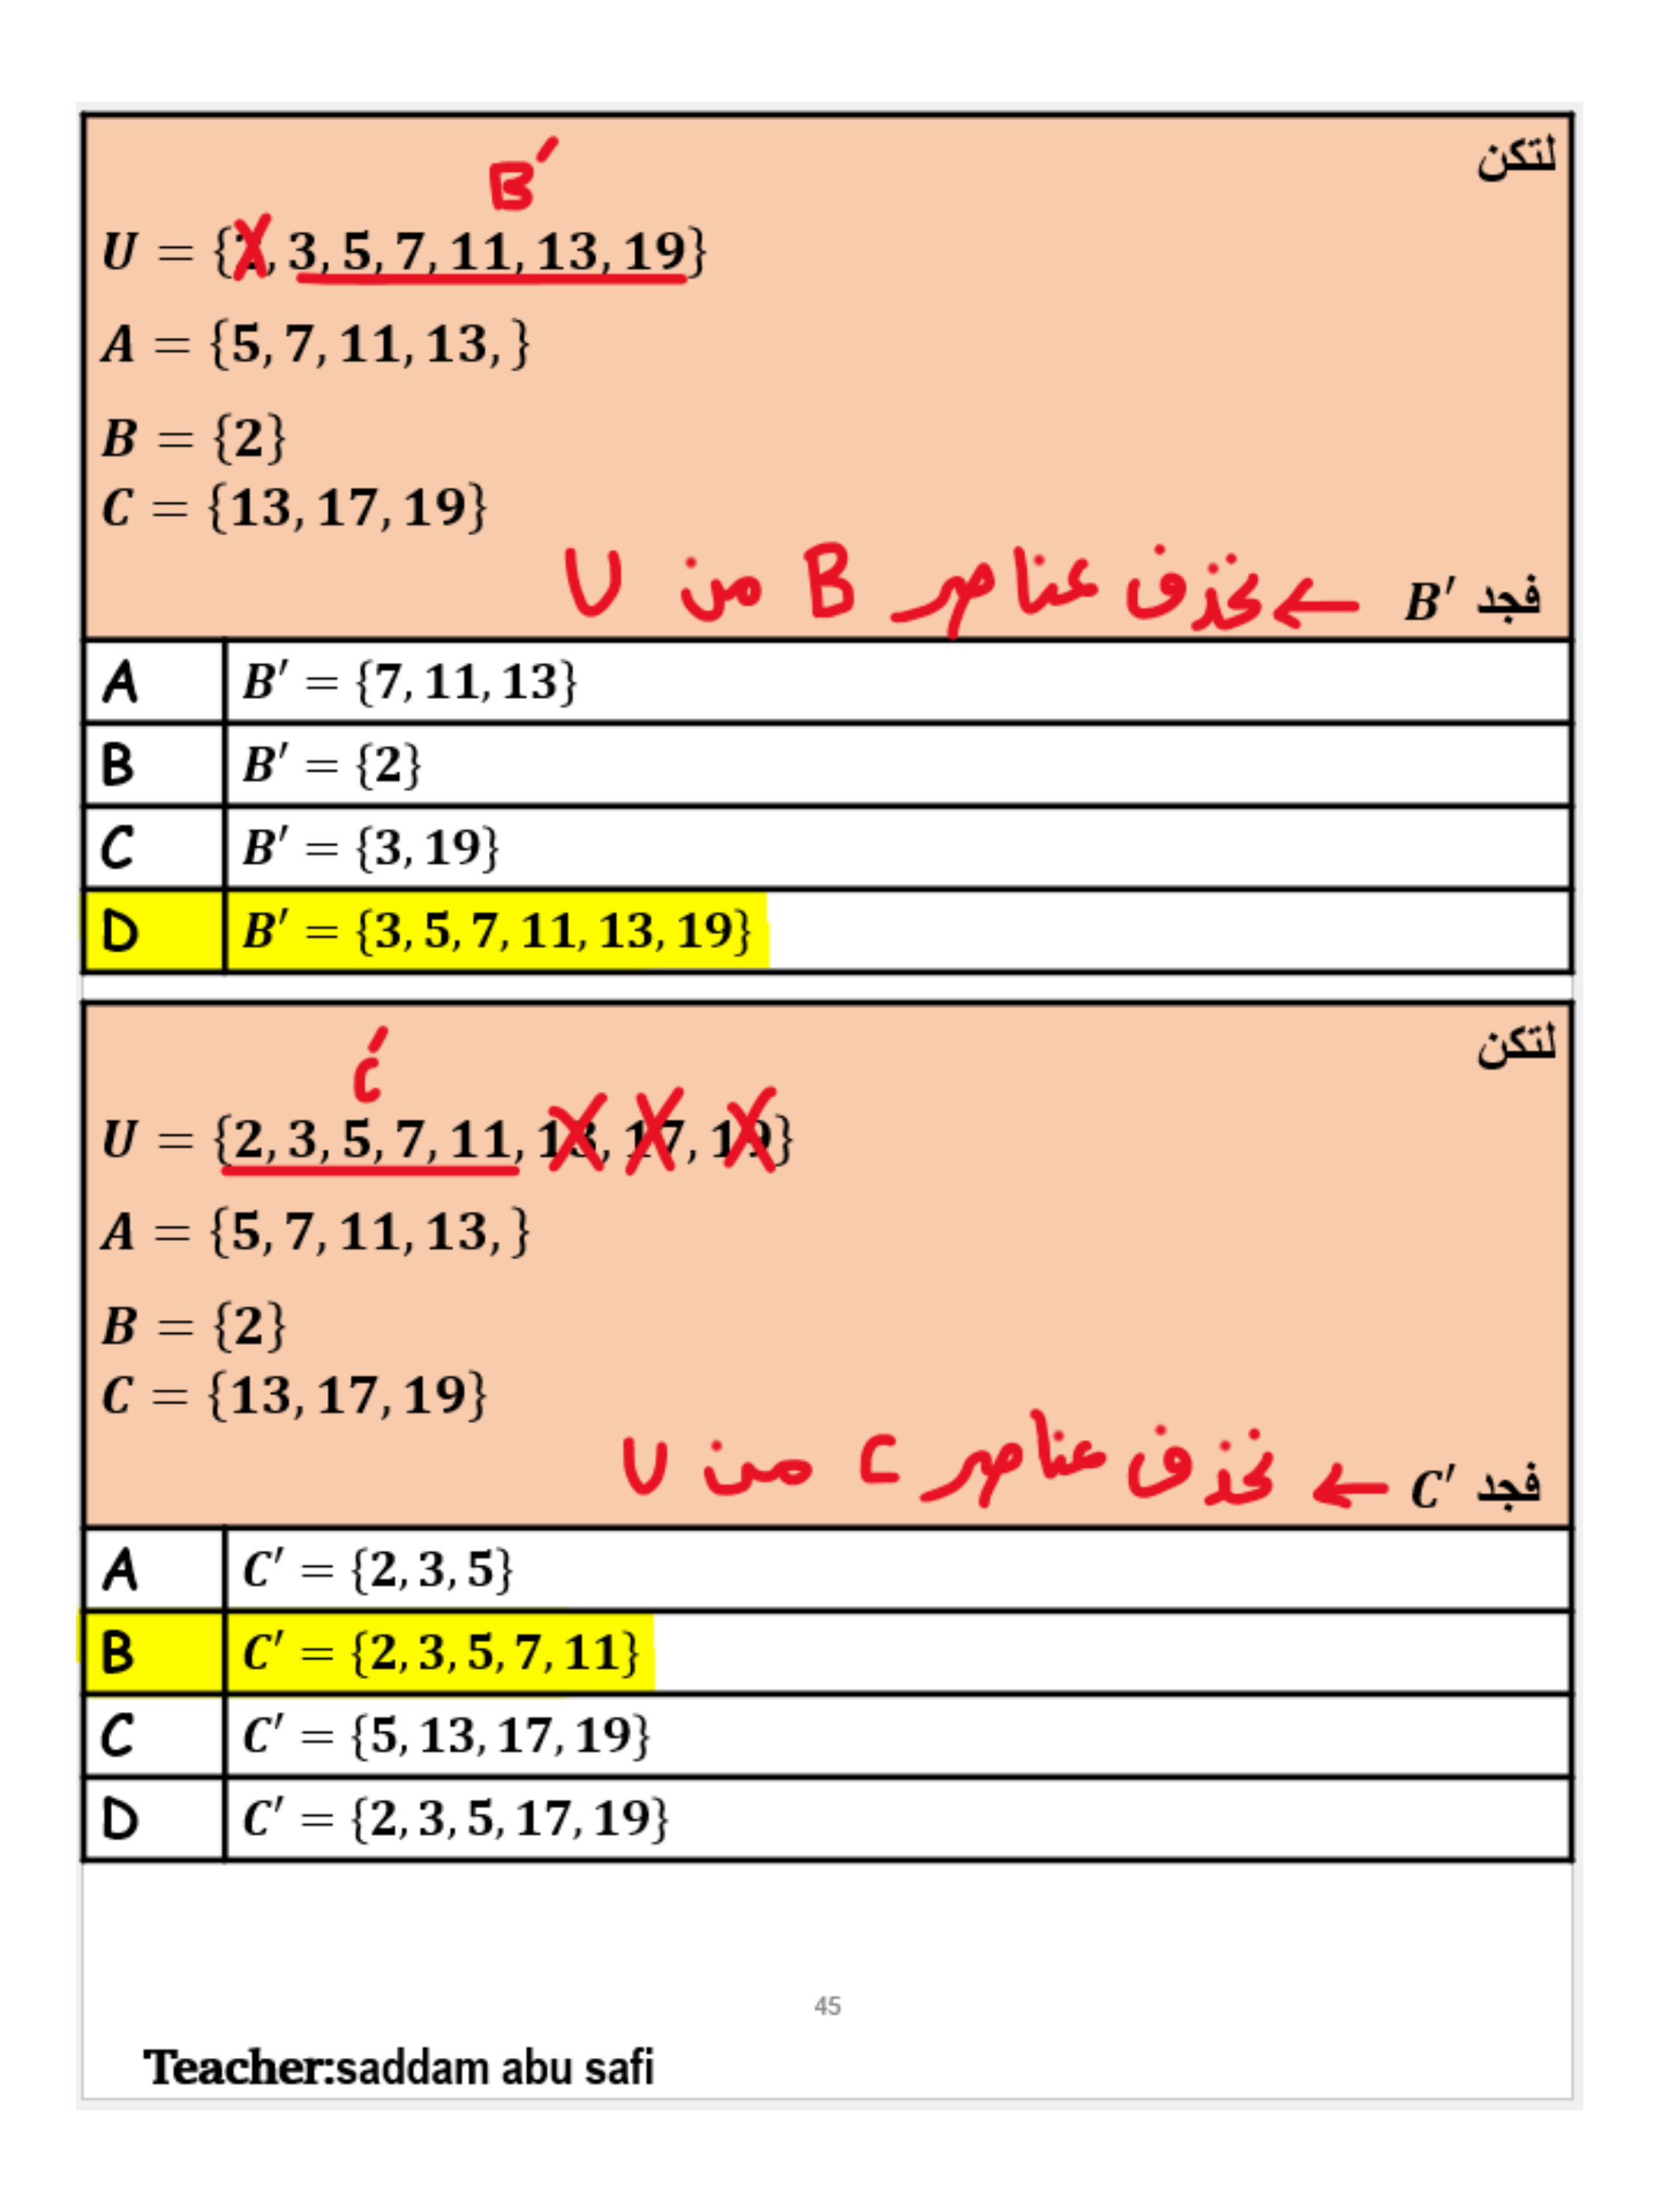 لتكن
B′
U = {2, 3, 5, 7, 11, 13, 19}
A = {5, 7, 11, 13, }
B = {2}
C = {13, 17, 19}
فجد B′ ← نحذف عناصر B من U
A B′ = {7, 11, 13}
B B′ = {2}
C B′ = {3, 19}
D B′ = {3, 5, 7, 11, 13, 19}
لتكن
C′
U = {2, 3, 5, 7, 11, 13, 17, 19}
A = {5, 7, 11, 13, }
B = {2}
C = {13, 17, 19}
فجد C′ ← نحذف عناصر C من U
A C′ = {2, 3, 5}
B C′ = {2, 3, 5, 7, 11}
C C′ = {5, 13, 17, 19}
D C′ = {2, 3, 5, 17, 19}
45
Teacher:saddam abu safi